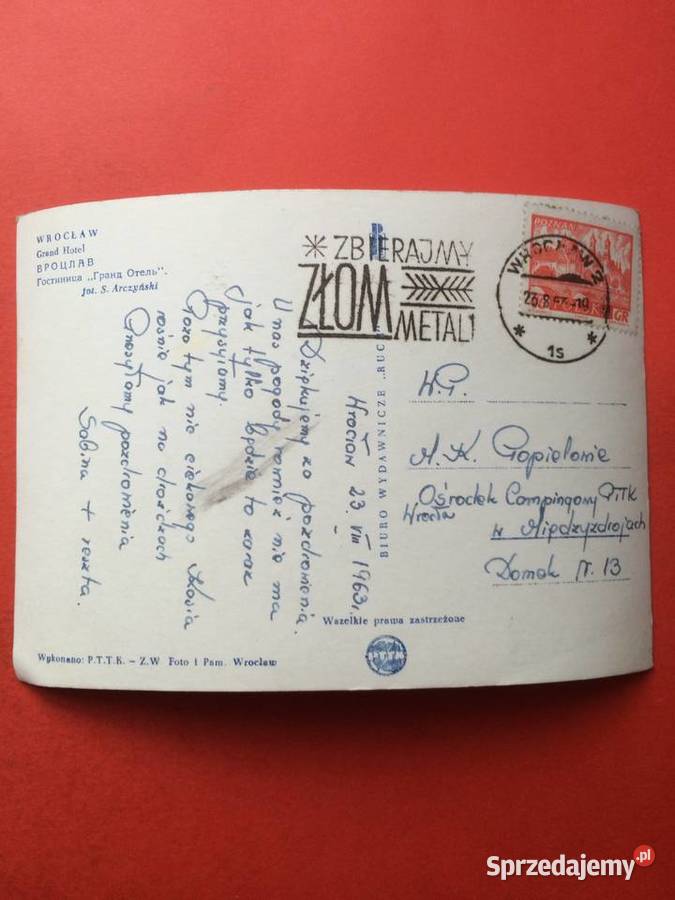 WROCŁAW
Grand Hotel
ВРОЦЛАВ
Гостиница „Гранд Отель".
fot. S. Arczyński
ZBIERAJMY
ZŁOM
METALI
POZNAŃ
GR
WROCŁAW 2
1s
Wrocław 23. VIII 1963 r.
Dziękujemy za pozdrowienia.
U nas pogody również nie ma
jak tylko będzie to zaraz
przyślemy.
Poza tym nic ciekawego Kasia
rośnie jak na drożdżach
pozdrowienia
Sabina + reszta.
BIURO WYDAWNICZE „RUCH"
W.P.
A. K. Gopielonie
Ośrodek Campingowy PTTK
w Międzyzdrojach
Domek Nr. 13
Wszelkie prawa zastrzeżone
PTTK
Wykonano: P.T.T.K. – Z.W Foto i Pam. Wrocław
Sprzedajemy.pl